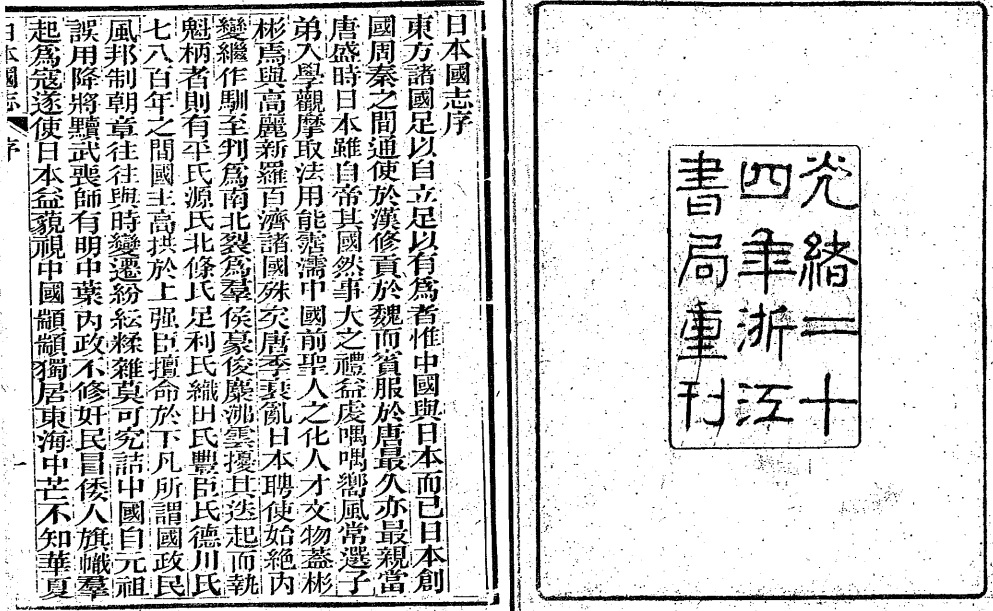 光緒二十
四年浙江
書局重刊
日本國志序
東方諸國足以自立足以有爲者惟中國與日本而已日本創
國周秦之間通使於漢修貢於魏而賓服於唐最久亦最親當
唐盛時日本雖自帝其國然事大之禮益虔喁喁嚮風常選子
弟入學觀摩取法用能霑濡中國前聖人之化人才文物蓋彬
彬焉與高麗新羅百濟諸國殊矣唐季衰亂日本聘使始絶内
變繼作馴至判爲南北裂爲羣侯豪俊麋沸雲擾其迭起而執
魁柄者則有平氏源氏北條氏足利氏織田氏豐臣氏德川氏
七八百年之間國主高拱於上强臣擅命於下凡所謂國政民
風邦制朝章往往與時變遷紛紜糅雜莫可究詰中國自元祖
誤用降將黷武喪師有明中葉内政不修奸民冒倭人旗幟羣
起爲寇遂使日本益藐視中國顓顓獨居東海中芒不知華夏
日本國志 序 一